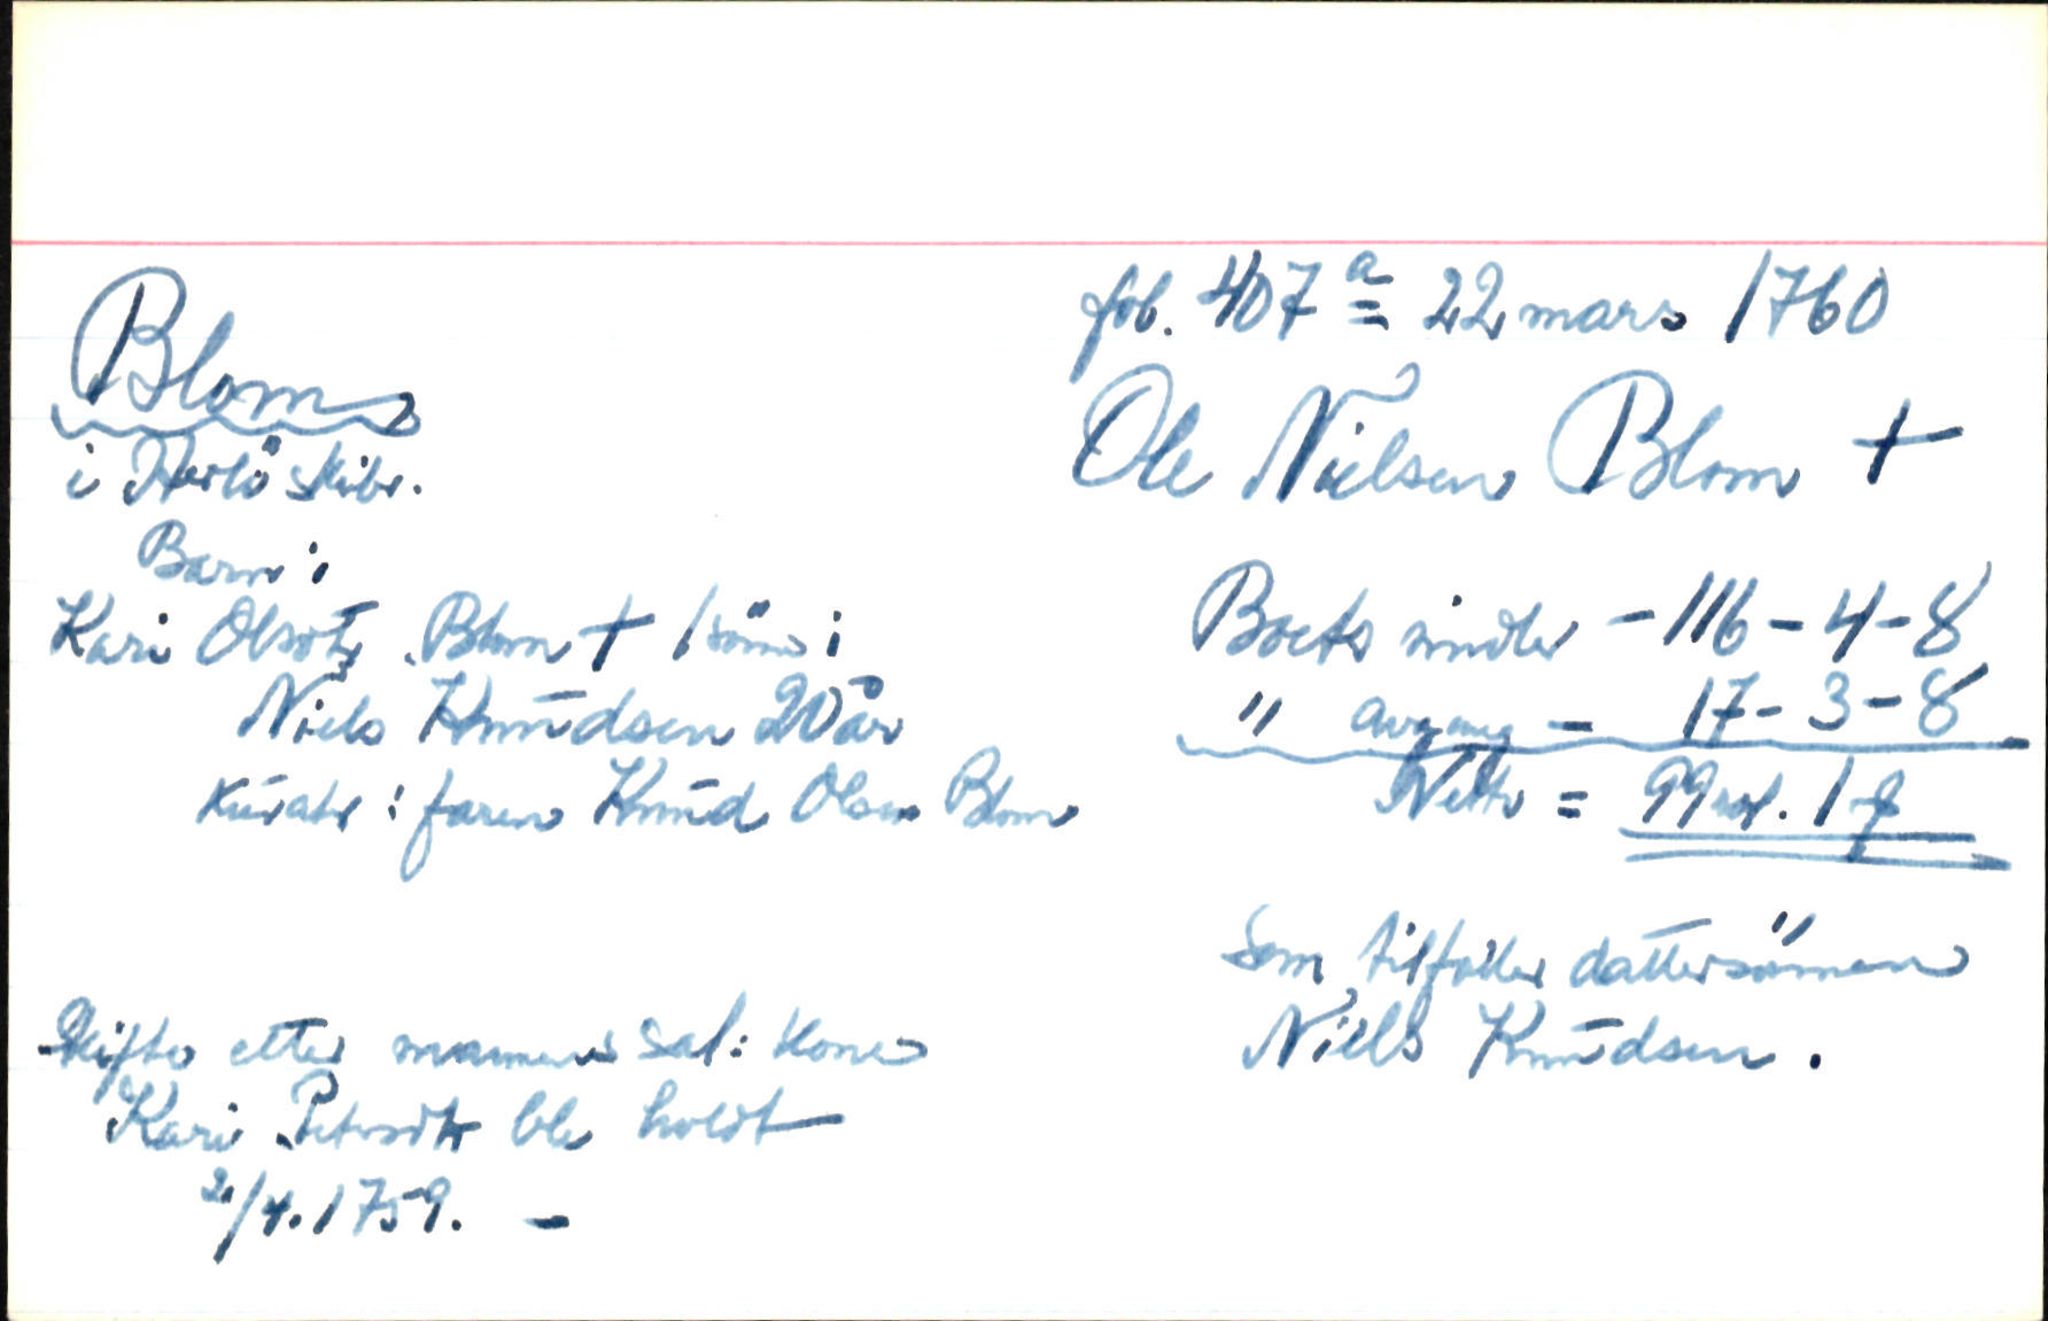 Blom
i Herlö skibr.
Barn:
Kari Olsdtr Blom † 1 sönn:
Niels Knudsen 20 år
Kurator: faren Knud Olsen Blom
Skifte etter mannens sal: kone
Kari Petersdtr ble holdt
2/4.1759. –
fol. 407a = 22 mars 1760
Ole Nielsen Blom †
Boets midler – 116 – 4 – 8
" avgang – 17 – 3 – 8
Netto = 99 rd. 1
som tilfaller dattersönnen
Niels Knudsen.